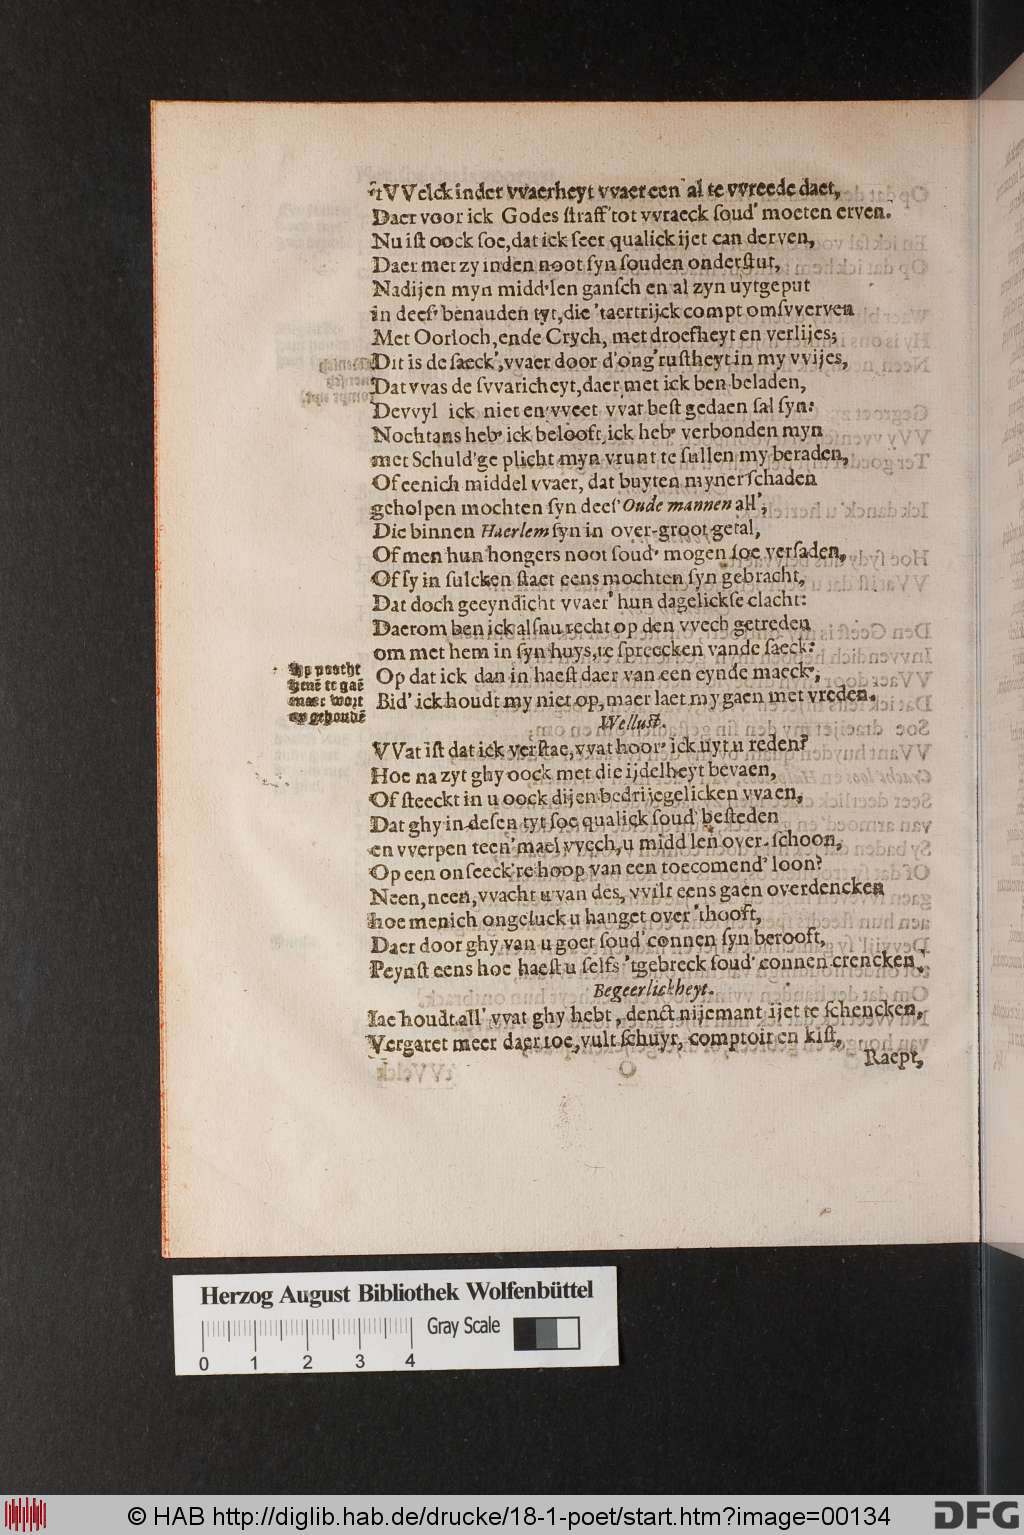 'tVVelck inder vvaerheyt vvaer een al te vvreede daet,
Daer voor ick Godes ſtraff' tot vvraeck ſoud' moeten erven.
Nu iſt oock ſoe, dat ick ſeer qualick ijet can derven,
Daer met zy inden noot ſyn ſouden onderſtut,
Nadijen myn midd'len ganſch en al zyn uytgeput
in deeſ' benauden tyt, die 'taertrijck compt omſvverven
Met Oorloch, ende Crych, met droefheyt en verlijes;
Dit is de ſaeck', vvaer door d'ong'ruſtheyt in my vvijes,
Dat vvas de ſvvaricheyt, daer met ick ben beladen,
Devvyl ick niet en vveet vvat beſt gedaen ſal ſyn:
Nochtans heb' ick belooft, ick heb' verbonden myn
met Schuld'ge plicht myn vrunt te ſullen my beraden,
Of eenich middel vvaer, dat buyten myner ſchaden
geholpen mochten ſyn deeſ' Oude mannen all',
Die binnen Haerlem ſyn in over-groot getal,
Of men hun hongers noot ſoud' mogen ſoe verſaden,
Of ſy in ſulcken ſtaet eens mochten ſyn gebracht,
Dat doch geeyndicht vvaer' hun dagelickſe clacht:
Daerom ben ick alſnu recht op den vvech getreden
om met hem in ſyn huys, te ſpreecken vande ſaeck:
Op dat ick dan in haeſt daer van een eynde maeck',
Hy poocht
henē te gaē
maer wort
op gehoudē
Bid' ick houdt my niet op, maer laet my gaen met vreden.
Wellust.
VVat iſt dat ick verſtae, vvat hoor' ick uyt u reden?
Hoe na zyt ghy oock met die ijdelheyt bevaen,
Of ſteeckt in u oock dijen bedrijegelicken vvaen,
Dat ghy in deſen tyt ſoe qualick ſoud' beſteden
en vverpen teen'mael vvech, u midd'len over-ſchoon,
Op een onſeeck're hoop van een toecomend' loon?
Neen, neen, vvacht u van des, vvilt eens gaen overdencken
hoe menich ongeluck u hanget over 'thooft,
Daer door ghy van u goet ſoud' connen ſyn berooft,
Peynſt eens hoe haeſt u ſelfs 'tgebreck ſoud' connen crencken.
Begeerlickheyt.
Iae houdt all' vvat ghy hebt, denct nijemant ijet te ſchencken,
Vergaret meer daer toe, vult ſchuyr, comptoir en kiſt,
Raept,
Herzog August Bibliothek Wolfenbüttel
Gray Scale
0 1 2 3 4
© HAB http://diglib.hab.de/drucke/18-1-poet/start.htm?image=00134
DFG